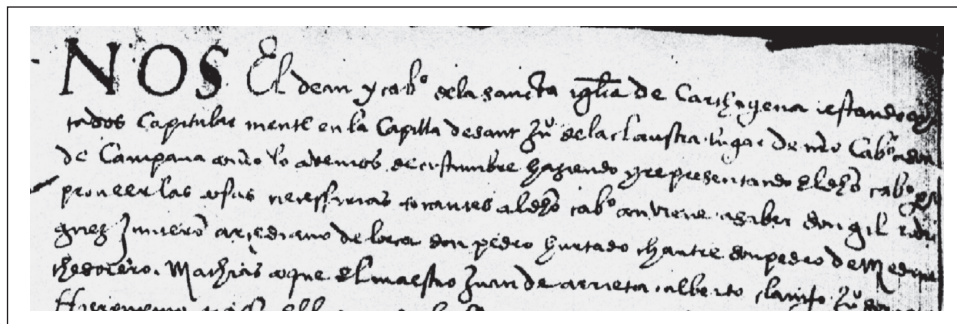 NOS El dean y cabº dela sancta iglia de Carthagena estando
tados Capitular mente en la Capilla de sant Juº de la claustra lugar de nrõ Cabº
de Campana como lo avemos de costumbre haziendo y representando el dhõ cabº
proveer las cosas necessarias tocantes al dhõ cabº conviene a saber don gil
Junteron arcediano de lorca don pedro hurtado chantre don pedro de
thesorero. Mathias coque el maestro Juan de arrieta. alberto clavijo Juº
Hieronymo